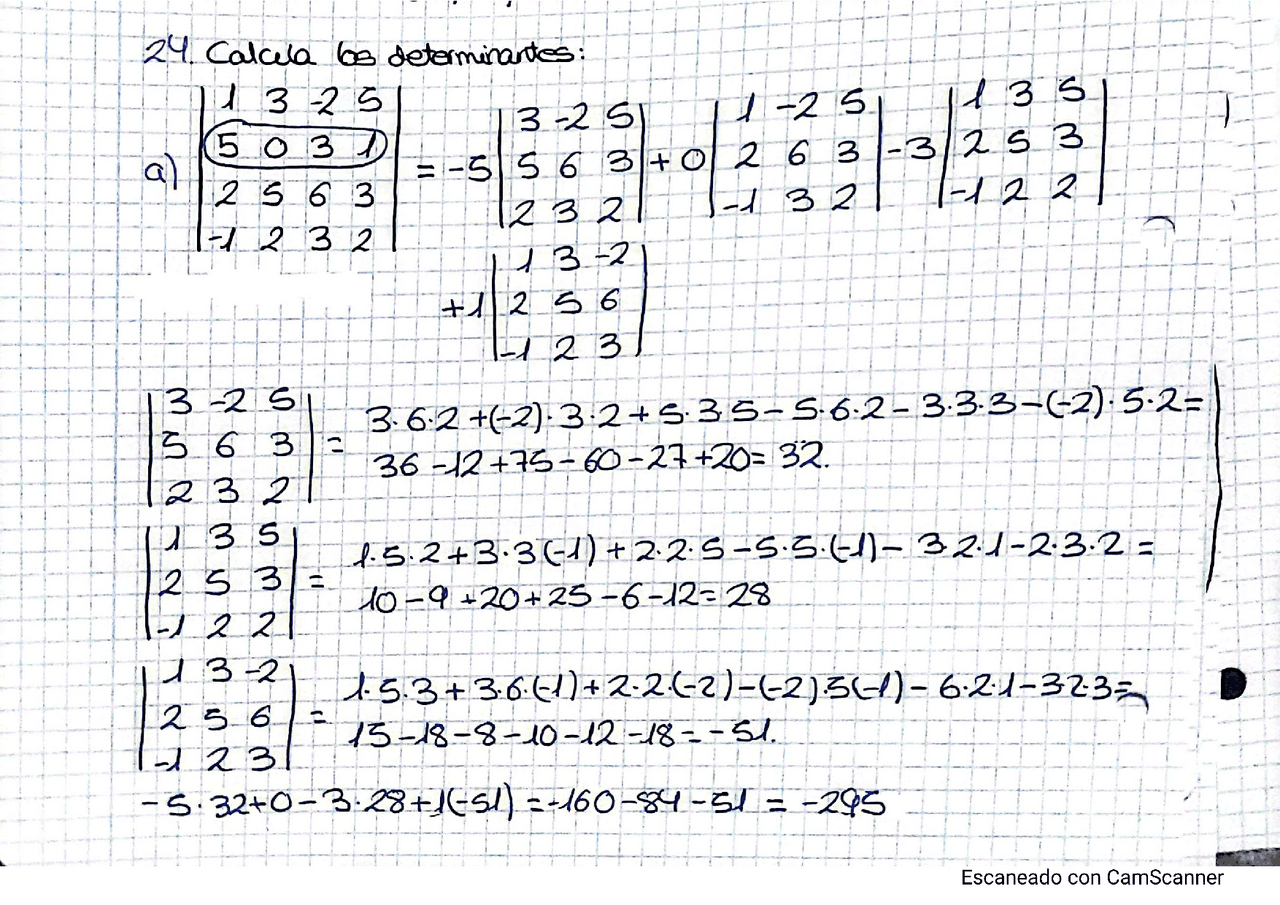 24. Calcula los determinantes:
a) | 1 3 -2 5 |
| 5 0 3 1 |
| 2 5 6 3 |
| -1 2 3 2 |
= -5 | 3 -2 5 |
| 5 6 3 |
| 2 3 2 |
+ 0 | 1 -2 5 |
| 2 6 3 |
| -1 3 2 |
- 3 | 1 3 5 |
| 2 5 3 |
| -1 2 2 |
+1 | 1 3 -2 |
| 2 5 6 |
| -1 2 3 |
| 3 -2 5 |
| 5 6 3 | =
| 2 3 2 |
3·6·2 +(-2)·3·2 + 5·3·5 - 5·6·2 - 3·3·3 - (-2)·5·2 =
36 - 12 + 75 - 60 - 27 + 20 = 32.
| 1 3 5 |
| 2 5 3 | =
| -1 2 2 |
1·5·2 + 3·3(-1) + 2·2·5 - 5·5·(-1) - 3·2·1 - 2·3·2 =
10 - 9 + 20 + 25 - 6 - 12 = 28
| 1 3 -2 |
| 2 5 6 | =
| -1 2 3 |
1·5·3 + 3·6·(-1) + 2·2·(-2) - (-2)·5(-1) - 6·2·1 - 3·2·3 =
15 - 18 - 8 - 10 - 12 - 18 = - 51.
- 5·32 + 0 - 3·28 + 1(-51) = -160 - 84 - 51 = -295
Escaneado con CamScanner